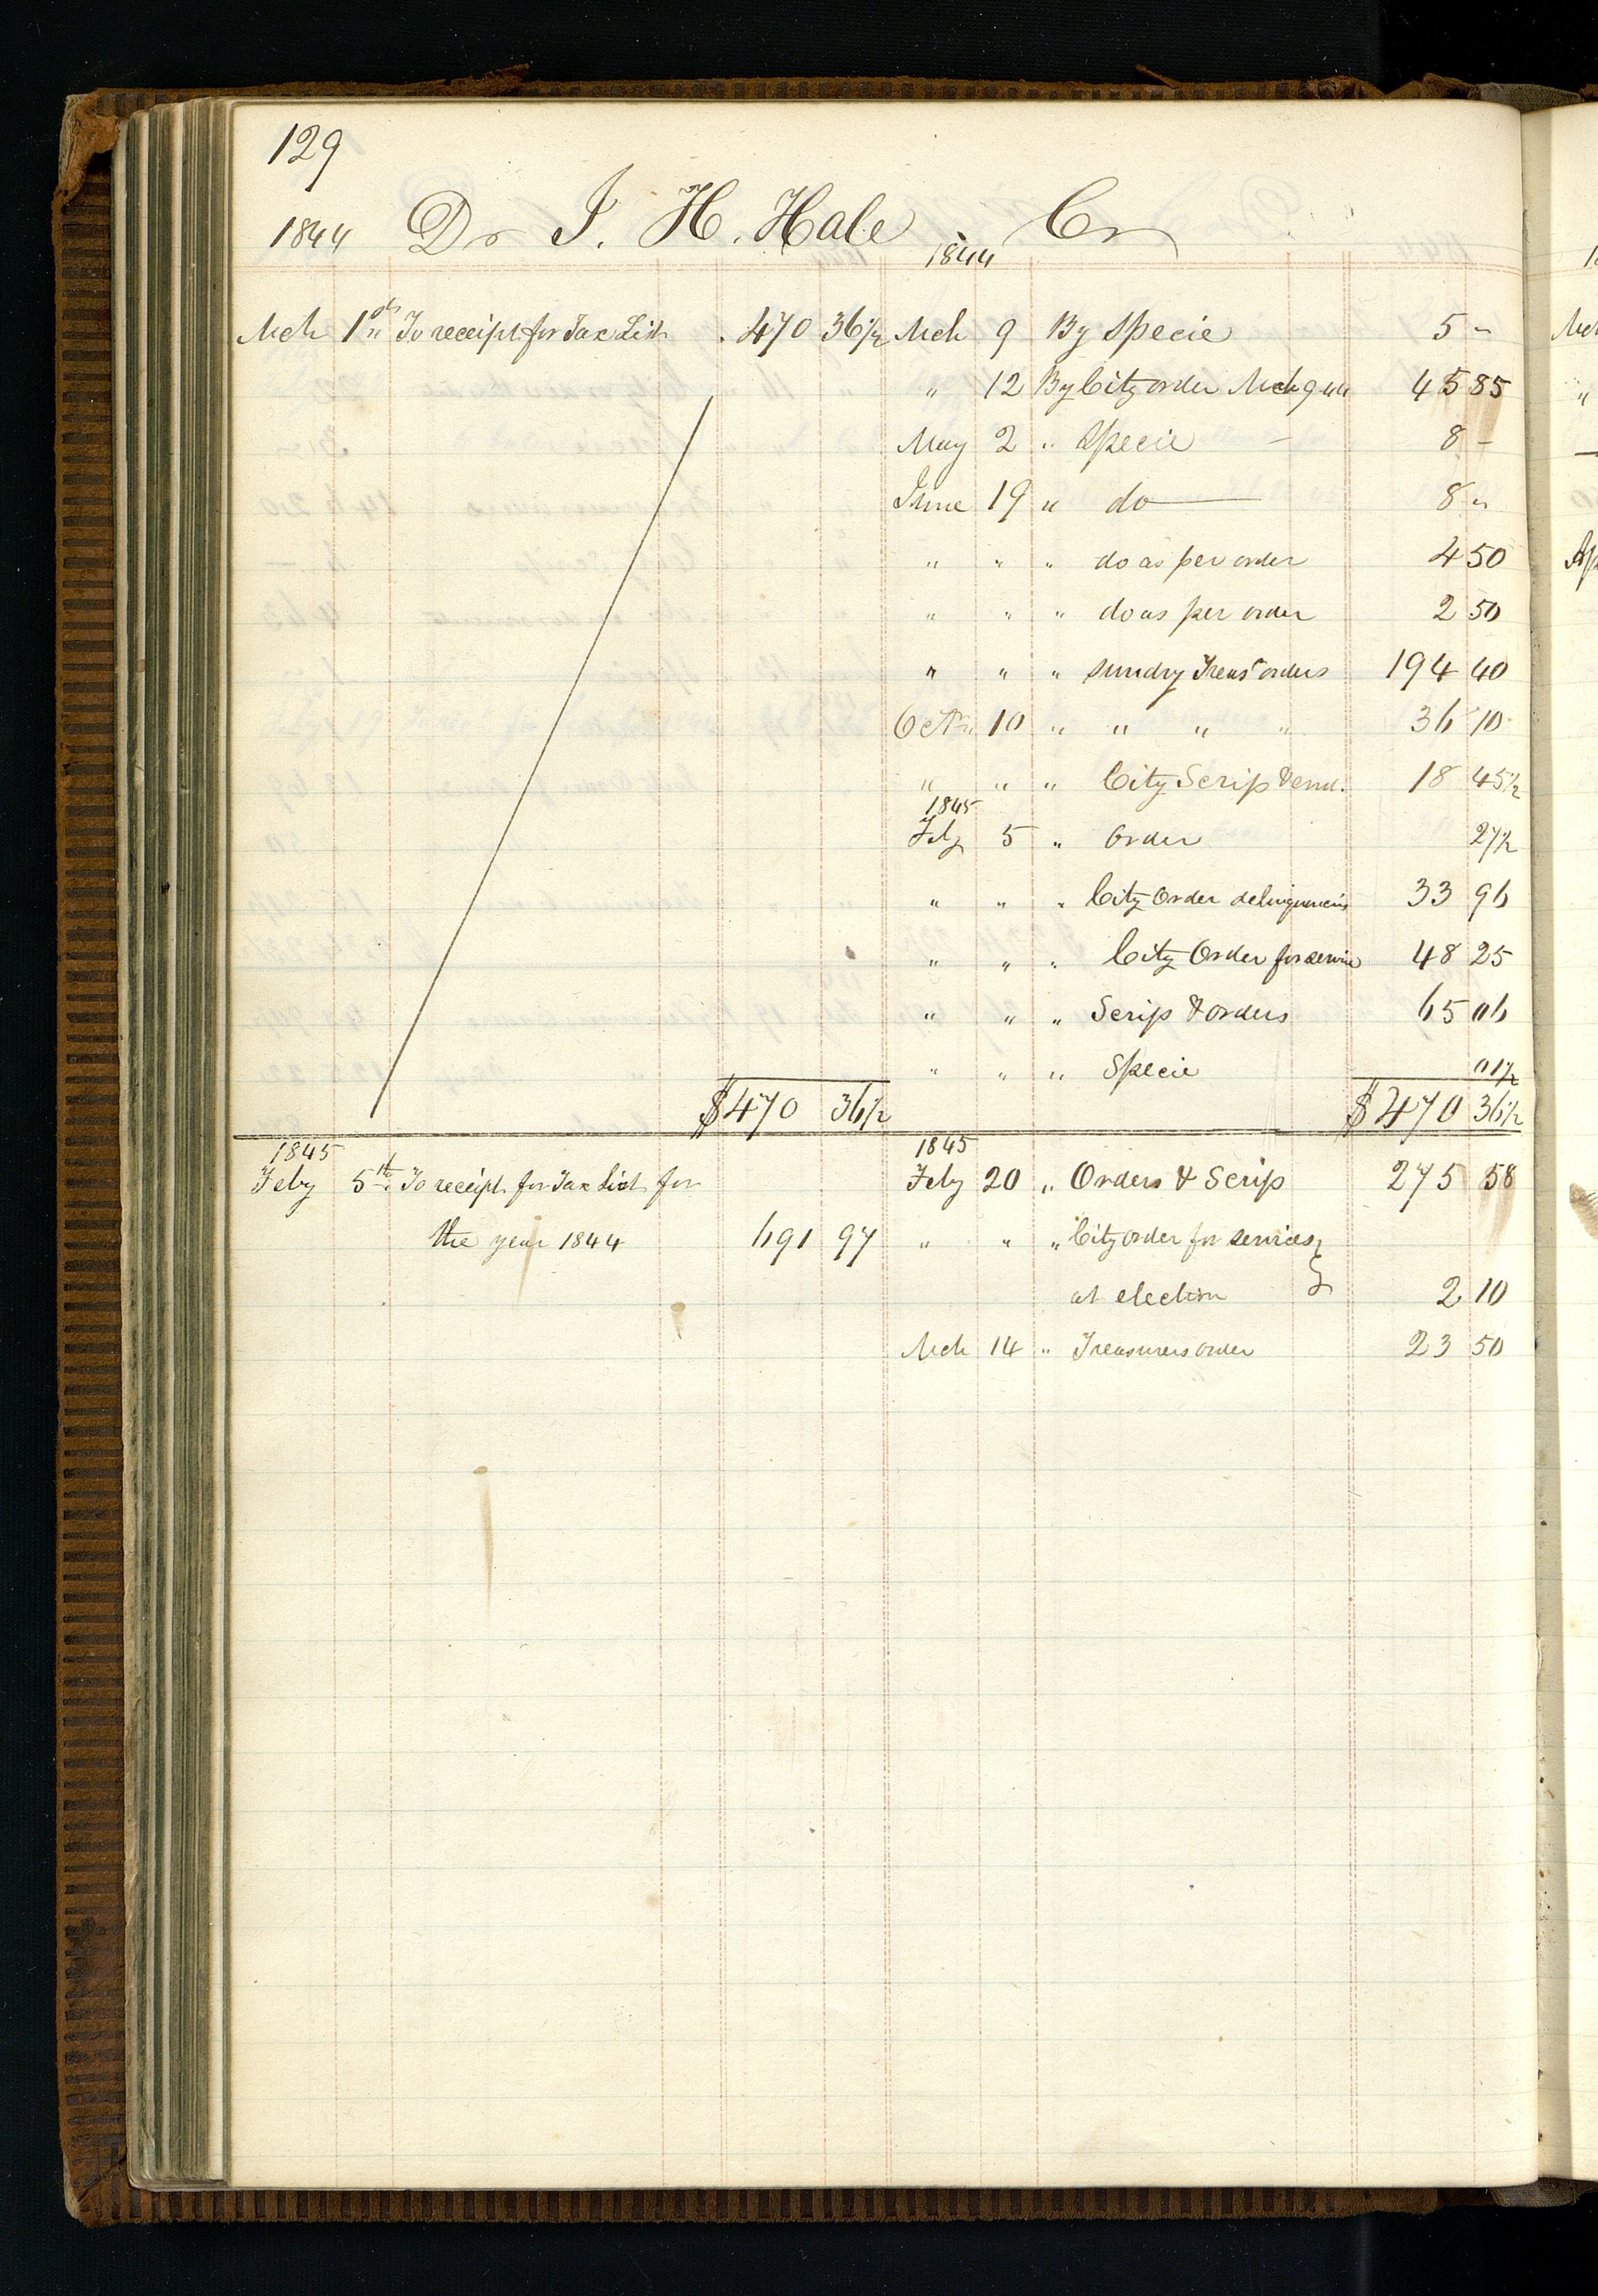 129
1844 Dr J. H. Hale Cr
1844
Mch 1st " To receipt for Tax List . 470 36½ Mch 9 By Specie 5 "
" 12 By City order Mch 9 44 45 85
May 2 " Specie – 8 –
June 19 " do — 8 "
" " " do as per order 4 50
" " " do as per order 2 50
" " " sundry Treasr orders 194 40
Octr 10 " " " " 36 10
" " " City Scrip & 18 45½
1845
Feby 5 " Order 27½
" " " City Order delinquencies 33 96
" " " City Order for service 48 25
" " " Scrip & orders 65 06
" " " Specie 01½
$470 36½ $470 36½
1845 1845
Feby 5th To receipt for Tax List for Feby 20 " Orders & Scrip 275 58
the year 1844 691 97 " " " City order for services }
at election } 2 10
Mch 14 " Treasurers order 23 50